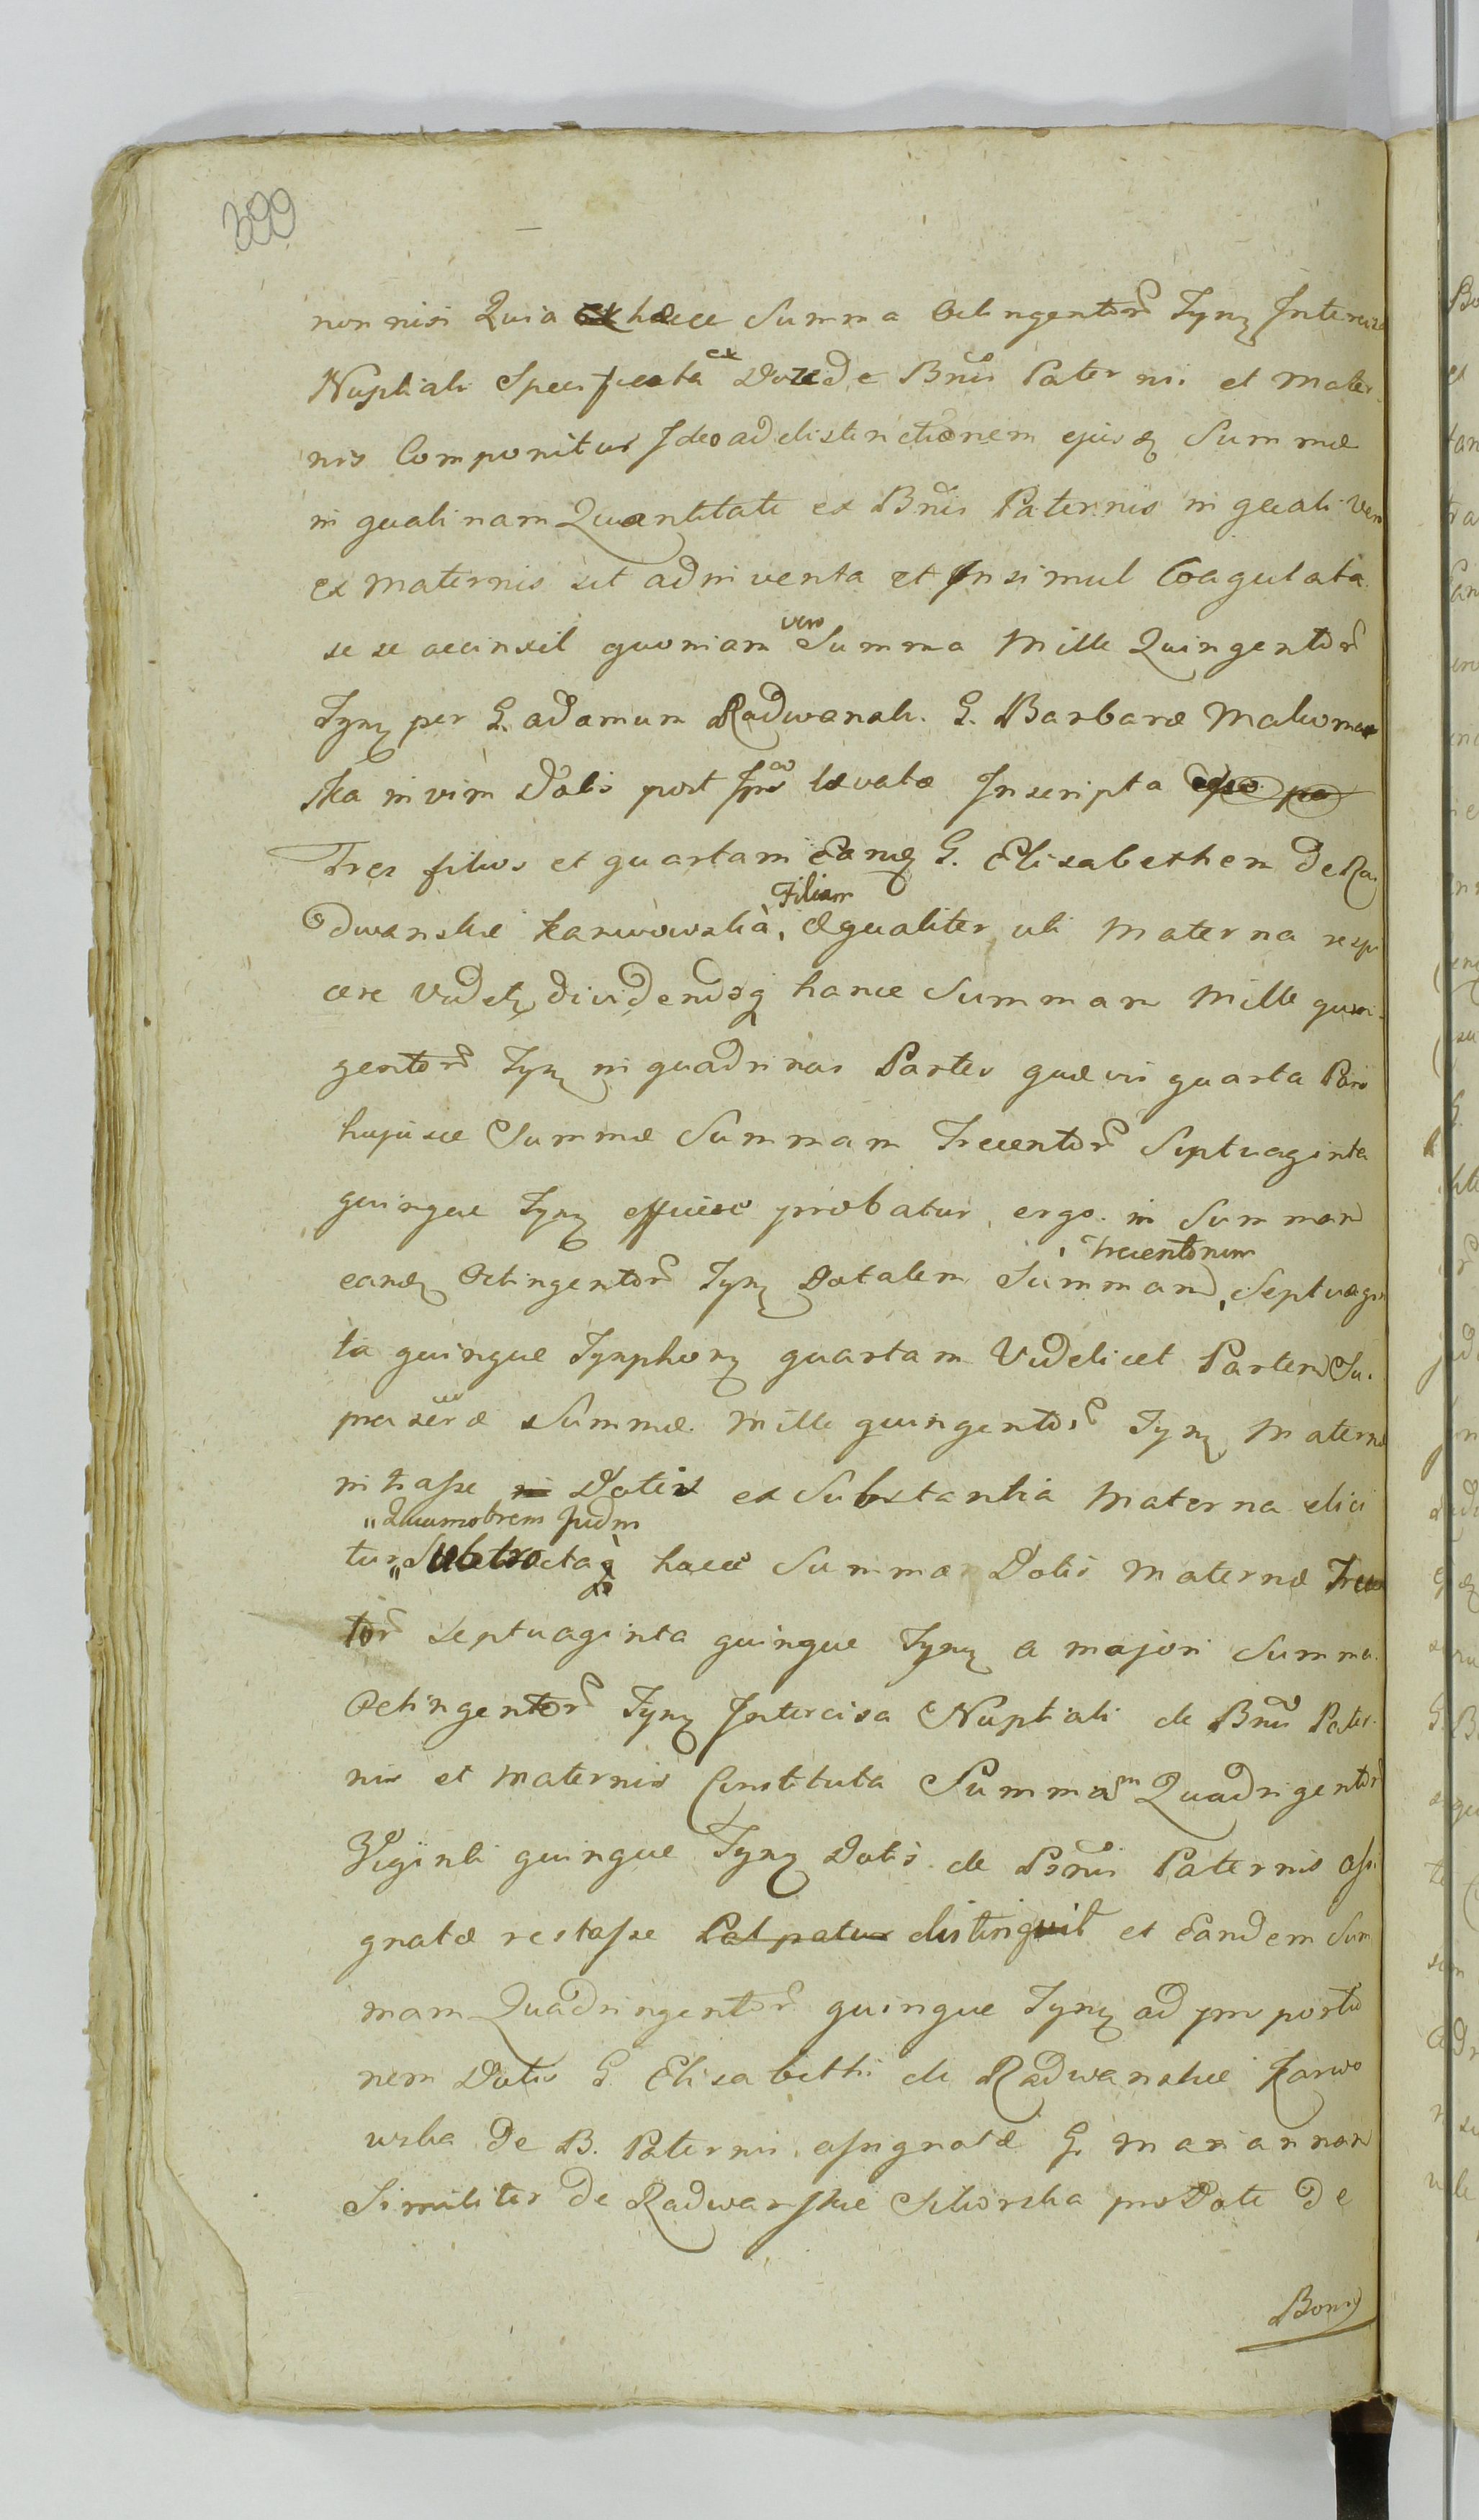 399
non nisi Quia haece Summa Octingentor Tynf Intercisa
Nuptiali Specificata ex Dote de Bnis Paternis et Mater
nis Componitur Ideo ad distinctionem ejusq Summæ
in qualinam Quantitate ex Bnis Paternis in quali vero
ex Maternis sit adinventa et Insimul Coagulata
se se accinxit quoniam vero Summa Mille Quingentor
Tynf per G. Adamum Radwansk. G. Barbaræ
ska in vim Dotis post levatæ Inscripta
Tres filios et quartam Eamq G. Elisabethem de Ra
dwanskie Karwowska, Filiam Æqualiter uti Materna
cere Videtr dividendoq hance Summam Mille quin
gentor Tynf in quadrinas Partes quævis quarta Pars
hujusce Summæ Summam Trecentor Septuaginta
quinque Tynf efficere probatur, ergo in Summam
eandq Octingentor Tynf Dotalem Summam, Trecentorum Septuagin
ta quinque Tynphonf quartam Videlicet Partem Su
prascræ Summæ Mille quingentor Tynf Maternæ
intrasse Dotis ex Substantia Materna elici
tur " Quamobrem Judm " Subtracta haece Summa Dotis Maternæ Trecen
tor Septuaginta quinque Tynf a majori Summa
Octingentor Tynf Intercisa Nuptiali de Bnis Pater
nis et Maternis Constituta Summam Quadrigentor
Viginti quinque Tynf Dotis de Bnis Paternis assi
gnatæ restasse distinguit et Eandem Sum
mam Quadringentor quinque Tynf ad proportio
nem Dotis G. Elisabethi de Radwanskie Karwo
wska De B. Paternis assignatæ G. Mariannam
Similiter De Radwanskie Sikorska pro Dote De
Bonis